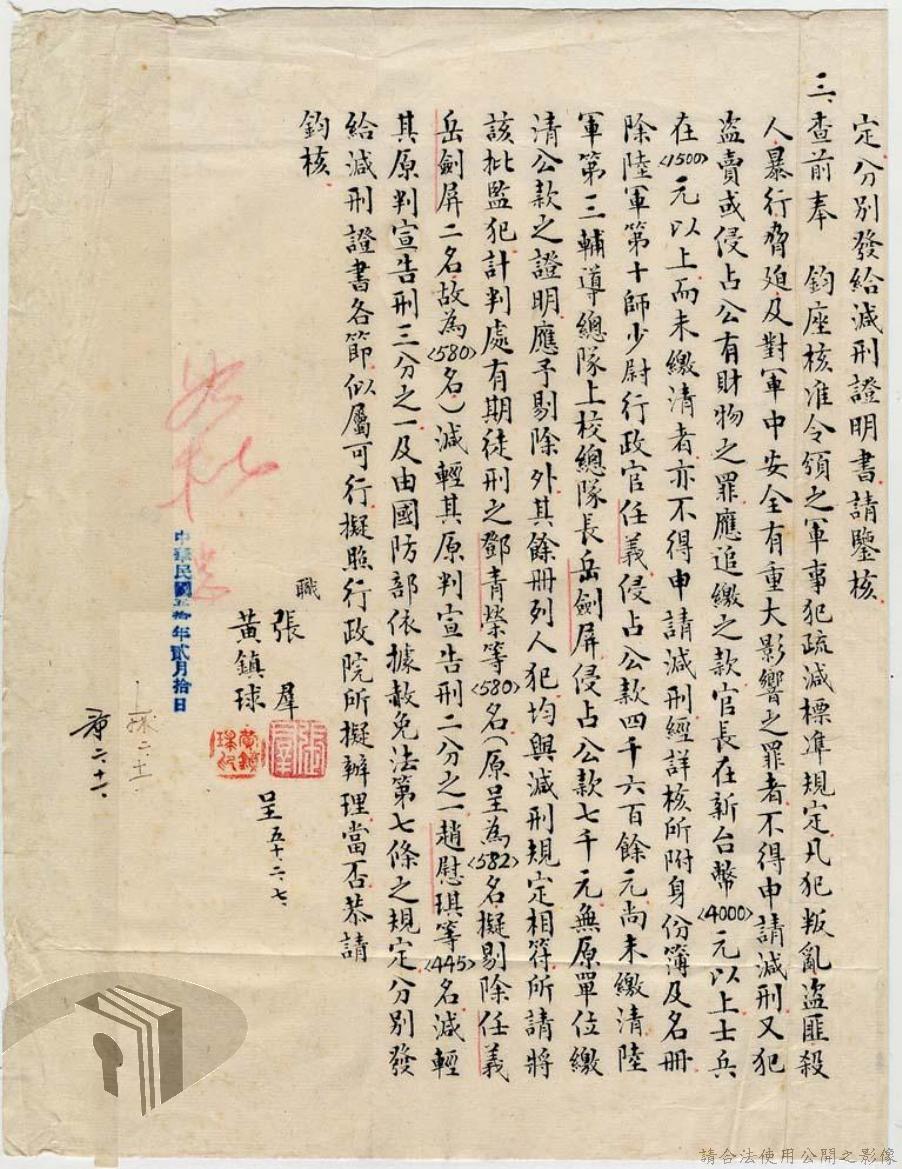 定分別發給減刑證明書請鑒核
三、查前奉 鈞座核准令頒之軍事犯疏減標準規定凡犯叛亂盜匪殺
人暴行脅迫及對軍中安全有重大影響之罪者不得申請減刑又犯
盜賣或侵占公有財物之罪應追繳之款官長在新台幣〈4000〉元以上士兵
在〈1500〉元以上而未繳清者亦不得申請減刑經詳核所附身份簿及名冊
除陸軍第十師少尉行政官任義侵占公款四千六百餘元尚未繳清陸
軍第三輔導總隊上校總隊長岳劍屏侵占公款七千元無原單位繳
清公款之證明應予剔除外其餘冊列人犯均與減刑規定相符所請將
該批監犯計判處有期徒刑之鄧青榮等〈580〉名(原呈為〈582〉名擬剔除任義
岳劍屏二名故為〈580〉名)減輕其原判宣告刑二分之一趙慰琪等〈445〉名減輕
其原判宣告刑三分之一及由國防部依據赦免法第七條之規定分別發
給減刑證書各節似屬可行擬照行政院所擬辦理當否恭請
鈞核
職張 羣
黃鎮球
呈 五十、六、七、
中華民國五拾年貳月拾日
請合法使用公開之影像